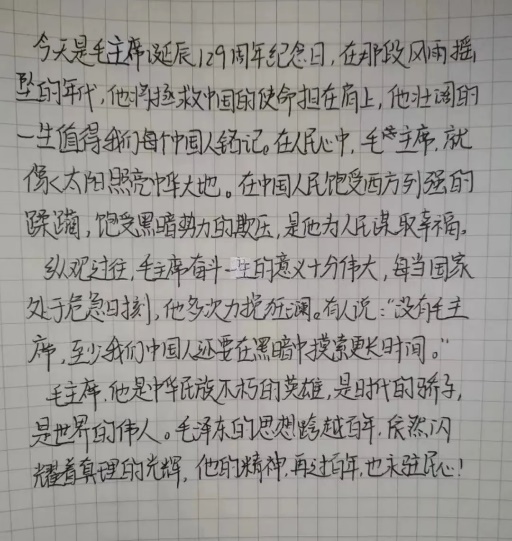 今天是毛主席诞辰129周年纪念日,在那段风雨摇
坠的年代,他将拯救中国的使命担在肩上,他壮阔的
一生值得我们每个中国人铭记。在人民心中,毛主席,就
像太阳照亮中华大地。在中国人民饱受西方列强的
蹂躏,饱受黑暗势力的欺压,是他为人民谋取幸福。
纵观过往,毛主席奋斗一生的意义十分伟大,每当国家
处于危急时刻,他多次力挽狂澜。有人说:“没有毛主
席,至少我们中国人还要在黑暗中摸索更长时间。”
毛主席,他是中华民族不朽的英雄,是时代的骄子,
是世界的伟人。毛泽东的思想跨越百年,依然闪
耀着真理的光辉,他的精神,再过百年,也永驻民心!